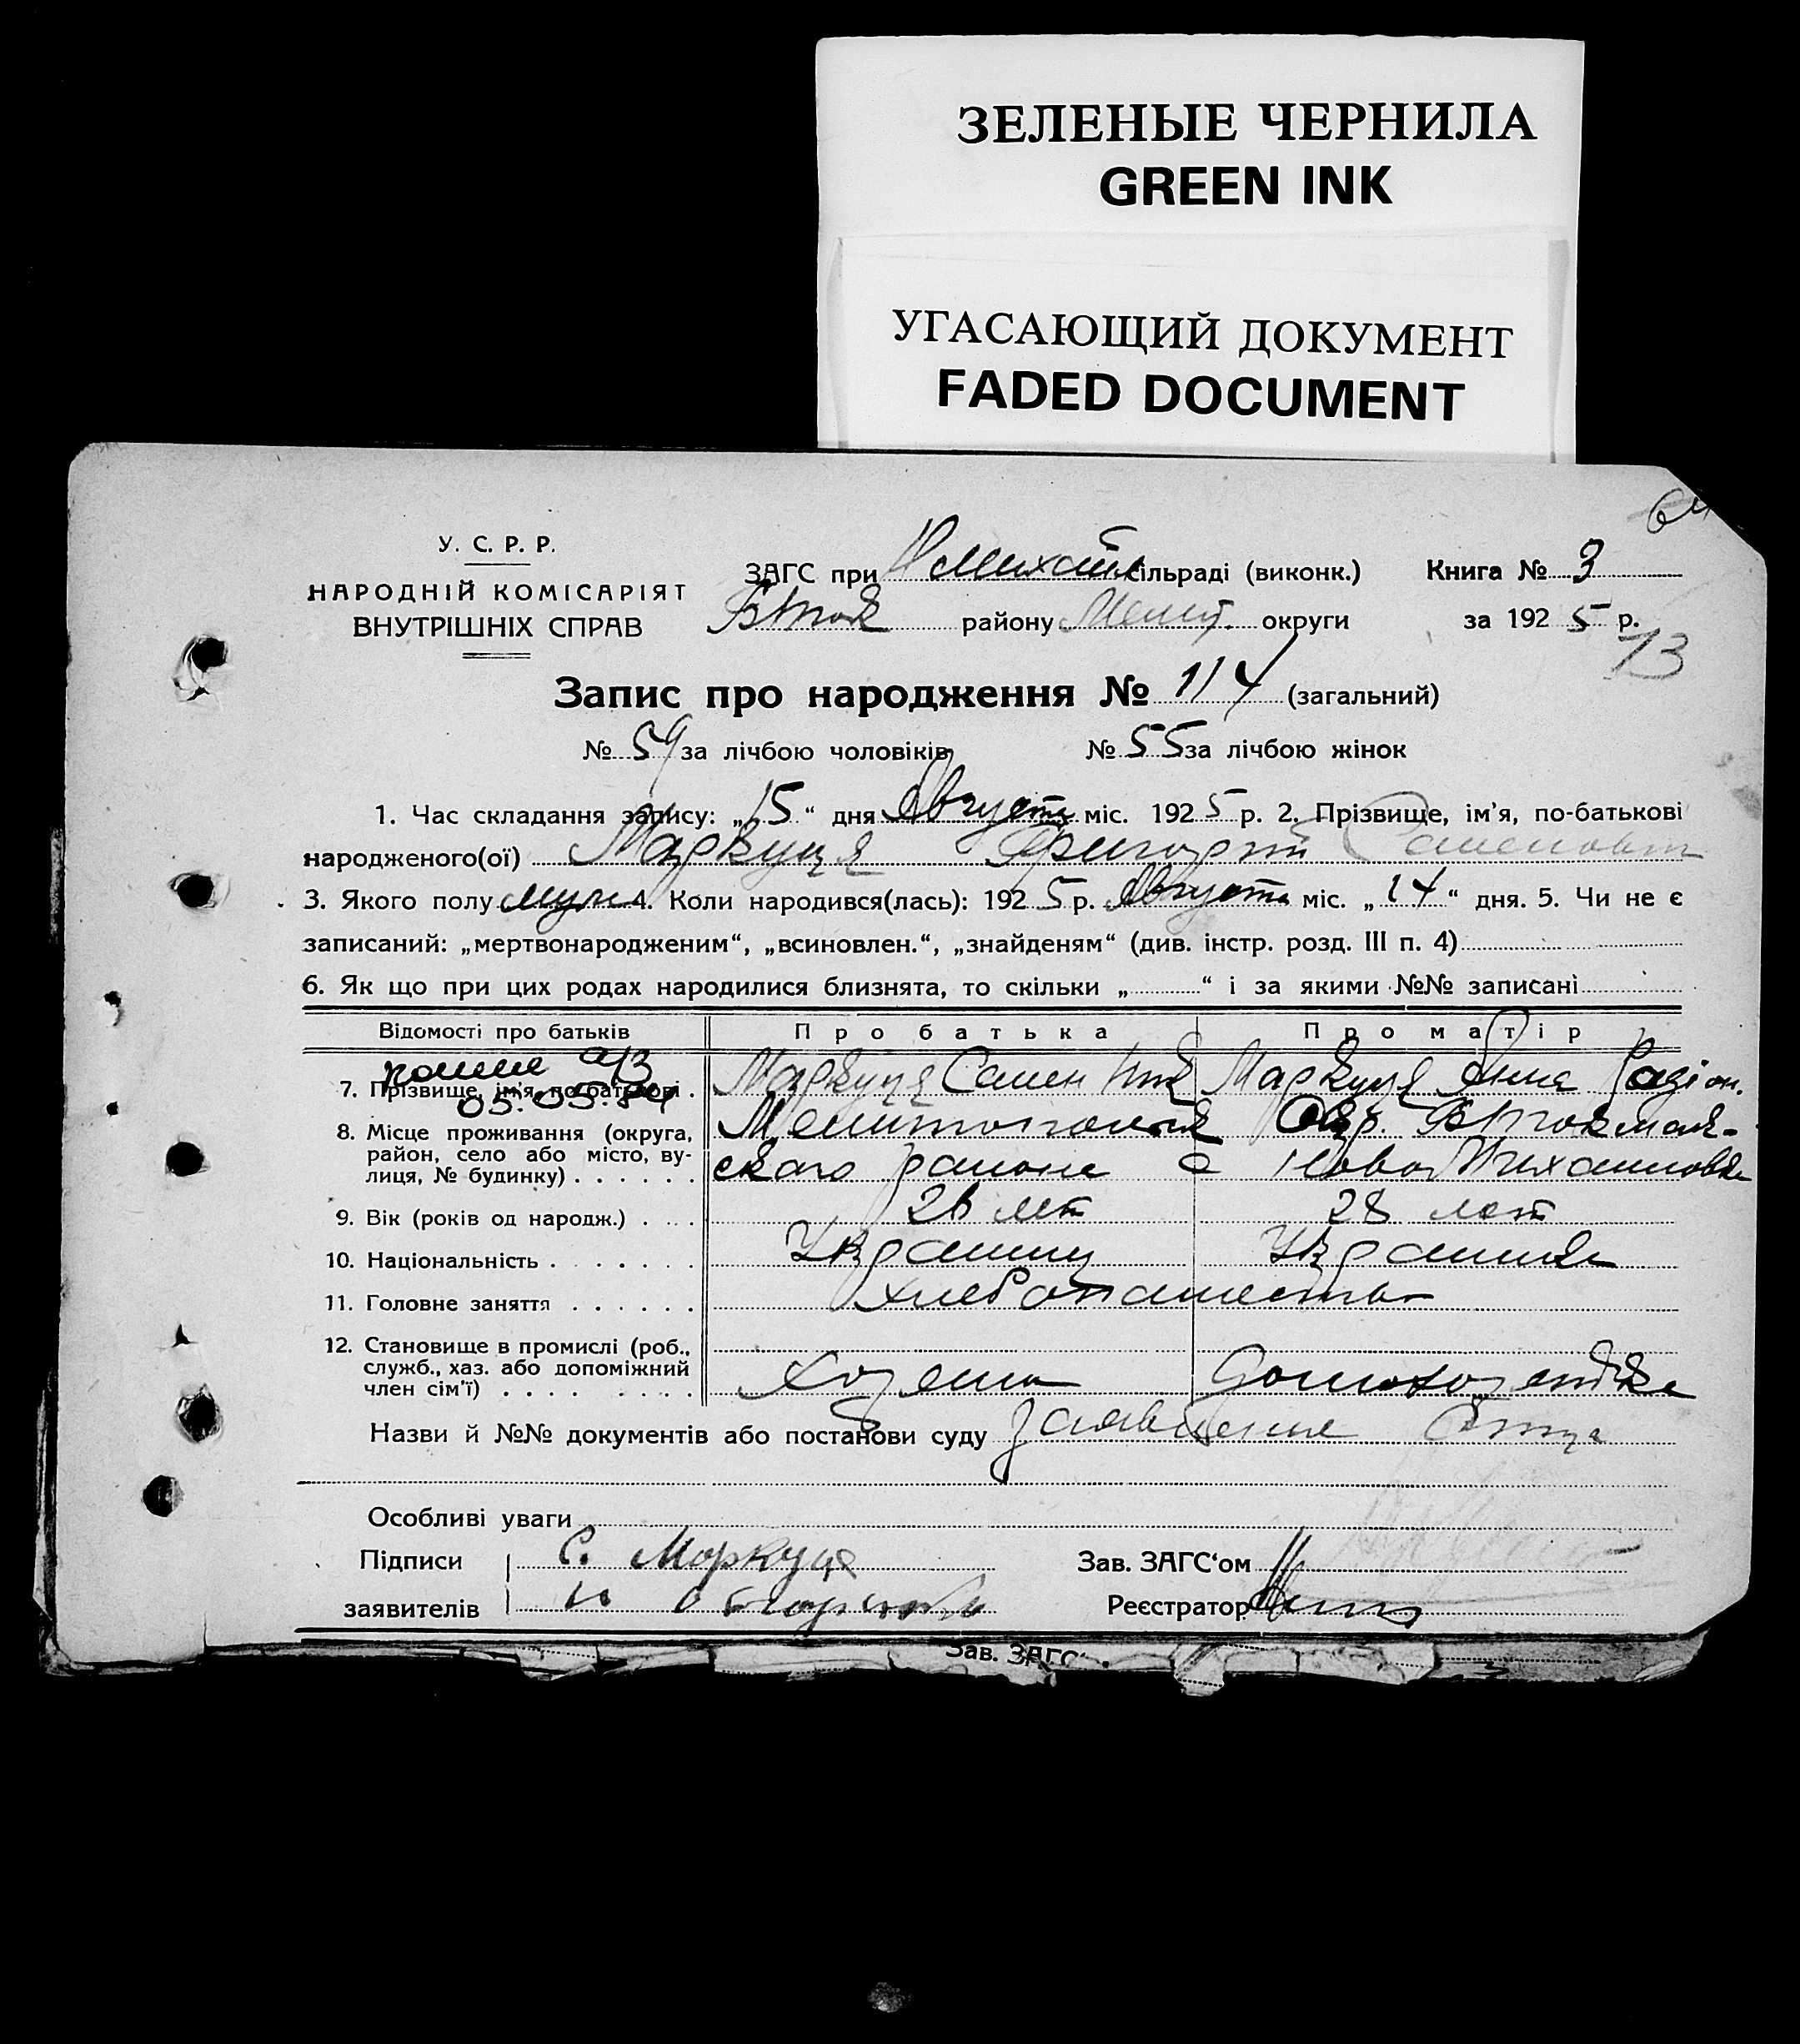 ЗЕЛЕНЫЕ ЧЕРНИЛА
GREEN INK
УГАСАЮЩИЙ ДОКУМЕНТ
FADED DOCUMENT
64
У. С. Р. Р.
НАРОДНІЙ КОМІСАРІЯТ
ВНУТРІШНІХ СПРАВ
ЗАГС при Н Михайл сільраді (виконк.) Книга № 3
БТок району Мелит. округи за 1925 р.
73
Запис про народження № 114 (загальний)
№ 59 за лічбою чоловіків № 55 за лічбою жінок
1. Час складання запису: „15“ дня Августа міс. 1925 р. 2. Прізвище, ім'я, по-батькові
народженого(ої) Маркуця Григорий Семенович
3. Якого полу муж 4. Коли народився(лась): 1925 р. Августа міс. „14“ дня. 5. Чи не є
записаний: „мертвонародженим“, „всиновлен.“, „знайденям“ (див. інстр. розд. III п. 4)
6. Як що при цих родах народилися близнята, то скільки „ “ і за якими №№ записані
Відомості про батьків Про батька Про матір
7. Прізвище, ім'я, по-батькові . Маркуця Семен Маркуця Анна Радіон.
05.05.
8. Місце проживання (округа, район, село або місто, вулиця, № будинку) . . . . . . Мелитопольск Окр. БТокмак-
ского района с Ново Михайловка
9. Вік (років од народж.) . . . 28 лет
10. Національність . . . . . . . Украинец Украинка
11. Головне заняття . . . . . . хлебопашество
12. Становище в промислі (роб., служб., хаз. або допоміжний член сім'ї) . . . . . . . . Хозяин Домохозяйка
Назви й №№ документів або постанови суду заявление Отца
Особливі уваги
Підписи С. Маркуця Зав. ЗАГС‘ом
заявителів Реєстратор
Зав. ЗАГС